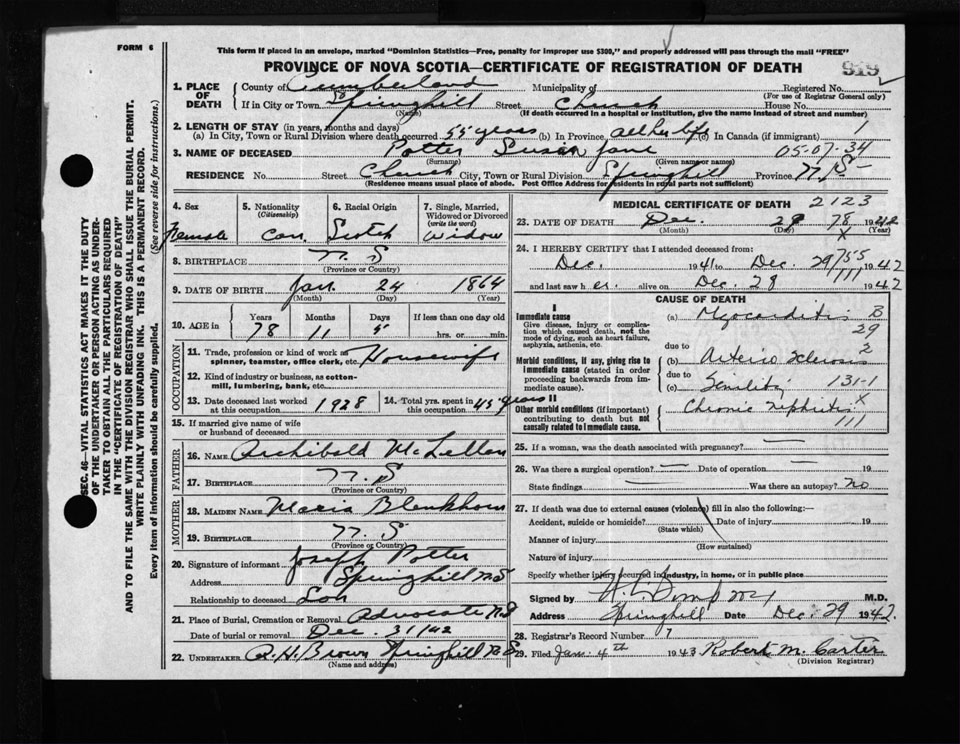 FORM 6
This form if placed in an envelope, marked "Dominion Statistics—Free, penalty for improper use $300," and properly addressed will pass through the mail "FREE"
PROVINCE OF NOVA SCOTIA—CERTIFICATE OF REGISTRATION OF DEATH
919
SEC. 46—VITAL STATISTICS ACT MAKES IT THE DUTY
OF THE UNDERTAKER OR PERSON ACTING AS UNDER-
TAKER TO OBTAIN ALL THE PARTICULARS REQUIRED
IN THE "CERTIFICATE OF REGISTRATION OF DEATH"
AND TO FILE THE SAME WITH THE DIVISION REGISTRAR WHO SHALL ISSUE THE BURIAL PERMIT.
WRITE PLAINLY WITH UNFADING INK. THIS IS A PERMANENT RECORD.
Every item of information should be carefully supplied. (See reverse side for instructions.)
1. PLACE OF DEATH
County of Cumberland Municipality of Registered No.
(For use of Registrar General only)
If in City or Town Springhill Street Church House No.
(Name) (If death occurred in a hospital or institution, give the name instead of street and number)
2. LENGTH OF STAY (in years, months and days)
(a) In City, Town or Rural Division where death occurred 55 years (b) In Province all her life (c) In Canada (if immigrant) 1
3. NAME OF DECEASED Potter Susan Jane 05-07-34
(Surname) (Given name or names)
RESIDENCE No. Street Church City, Town or Rural Division Springhill Province N.S.
(Residence means usual place of abode. Post Office Address for residents in rural parts not sufficient)
4. Sex Female
5. Nationality (Citizenship) Can
6. Racial Origin Scotch
7. Single, Married, Widowed or Divorced (write the word) Widow
8. BIRTHPLACE N. S
(Province or Country)
9. DATE OF BIRTH Jan. 24 1864
(Month) (Day) (Year)
10. AGE in Years 78 Months 11 Days 5 If less than one day old hrs. or min.
OCCUPATION
11. Trade, profession or kind of work as spinner, teamster, office clerk, etc. Housewife
12. Kind of industry or business, as cotton-mill, lumbering, bank, etc.
13. Date deceased last worked at this occupation 1928
14. Total yrs. spent in this occupation 45 years
15. If married give name of wife or husband of deceased
FATHER
16. NAME Archibald McLellan
17. BIRTHPLACE N. S
(Province or Country)
MOTHER
18. MAIDEN NAME Maria Blenkhorn
19. BIRTHPLACE N. S
(Province or Country)
20. Signature of informant Joseph Potter
Address Springhill N S
Relationship to deceased Son
21. Place of Burial, Cremation or Removal Advocate N.S
Date of burial or removal Dec. 31/42
22. UNDERTAKER R. H. Brown Springhill N S
(Name and address)
MEDICAL CERTIFICATE OF DEATH 2123
23. DATE OF DEATH Dec. 29 78 1942
(Month) (Day) X (Year)
24. I HEREBY CERTIFY that I attended deceased from:
Dec. 1941 to Dec. 29 755 1942
111
and last saw her alive on Dec. 28 1942
CAUSE OF DEATH
I
Immediate cause
Give disease, injury or complication which caused death, not the mode of dying, such as heart failure, asphyxia, asthenia, etc.
(a) Myocarditis B
29
due to
2
Morbid conditions, if any, giving rise to immediate cause (stated in order proceeding backwards from immediate cause).
(b) Arterio Sclerosis
due to
(c) Senility 131-1
II
Other morbid conditions (if important) contributing to death but not causally related to immediate cause.
Chronic Nephritis X
111
25. If a woman, was the death associated with pregnancy? —
26. Was there a surgical operation? — Date of operation — 19
State findings — Was there an autopsy? No
27. If death was due to external causes (violence) fill in also the following:—
Accident, suicide or homicide? Date of injury 19
(State which)
Manner of injury
(How sustained)
Nature of injury
Specify whether injury occurred in industry, in home, or in public place
Signed by M.D.
Address Springhill Date Dec. 29 1942.
28. Registrar's Record Number 7
29. Filed Jan. 4th 1943 Robert M. Carter
(Division Registrar)